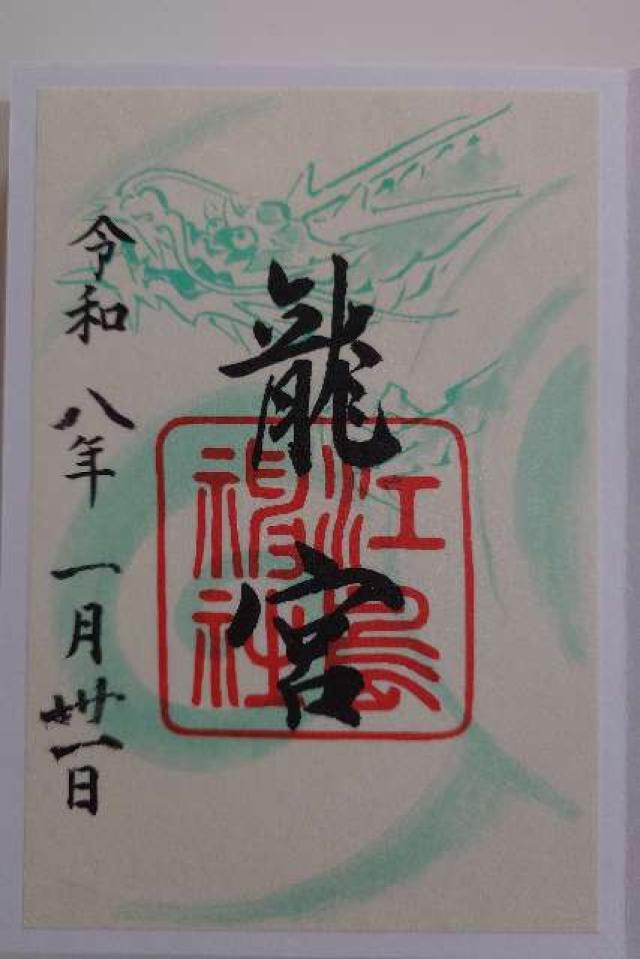 龍宮
江島
神社
令和八年一月卅一日